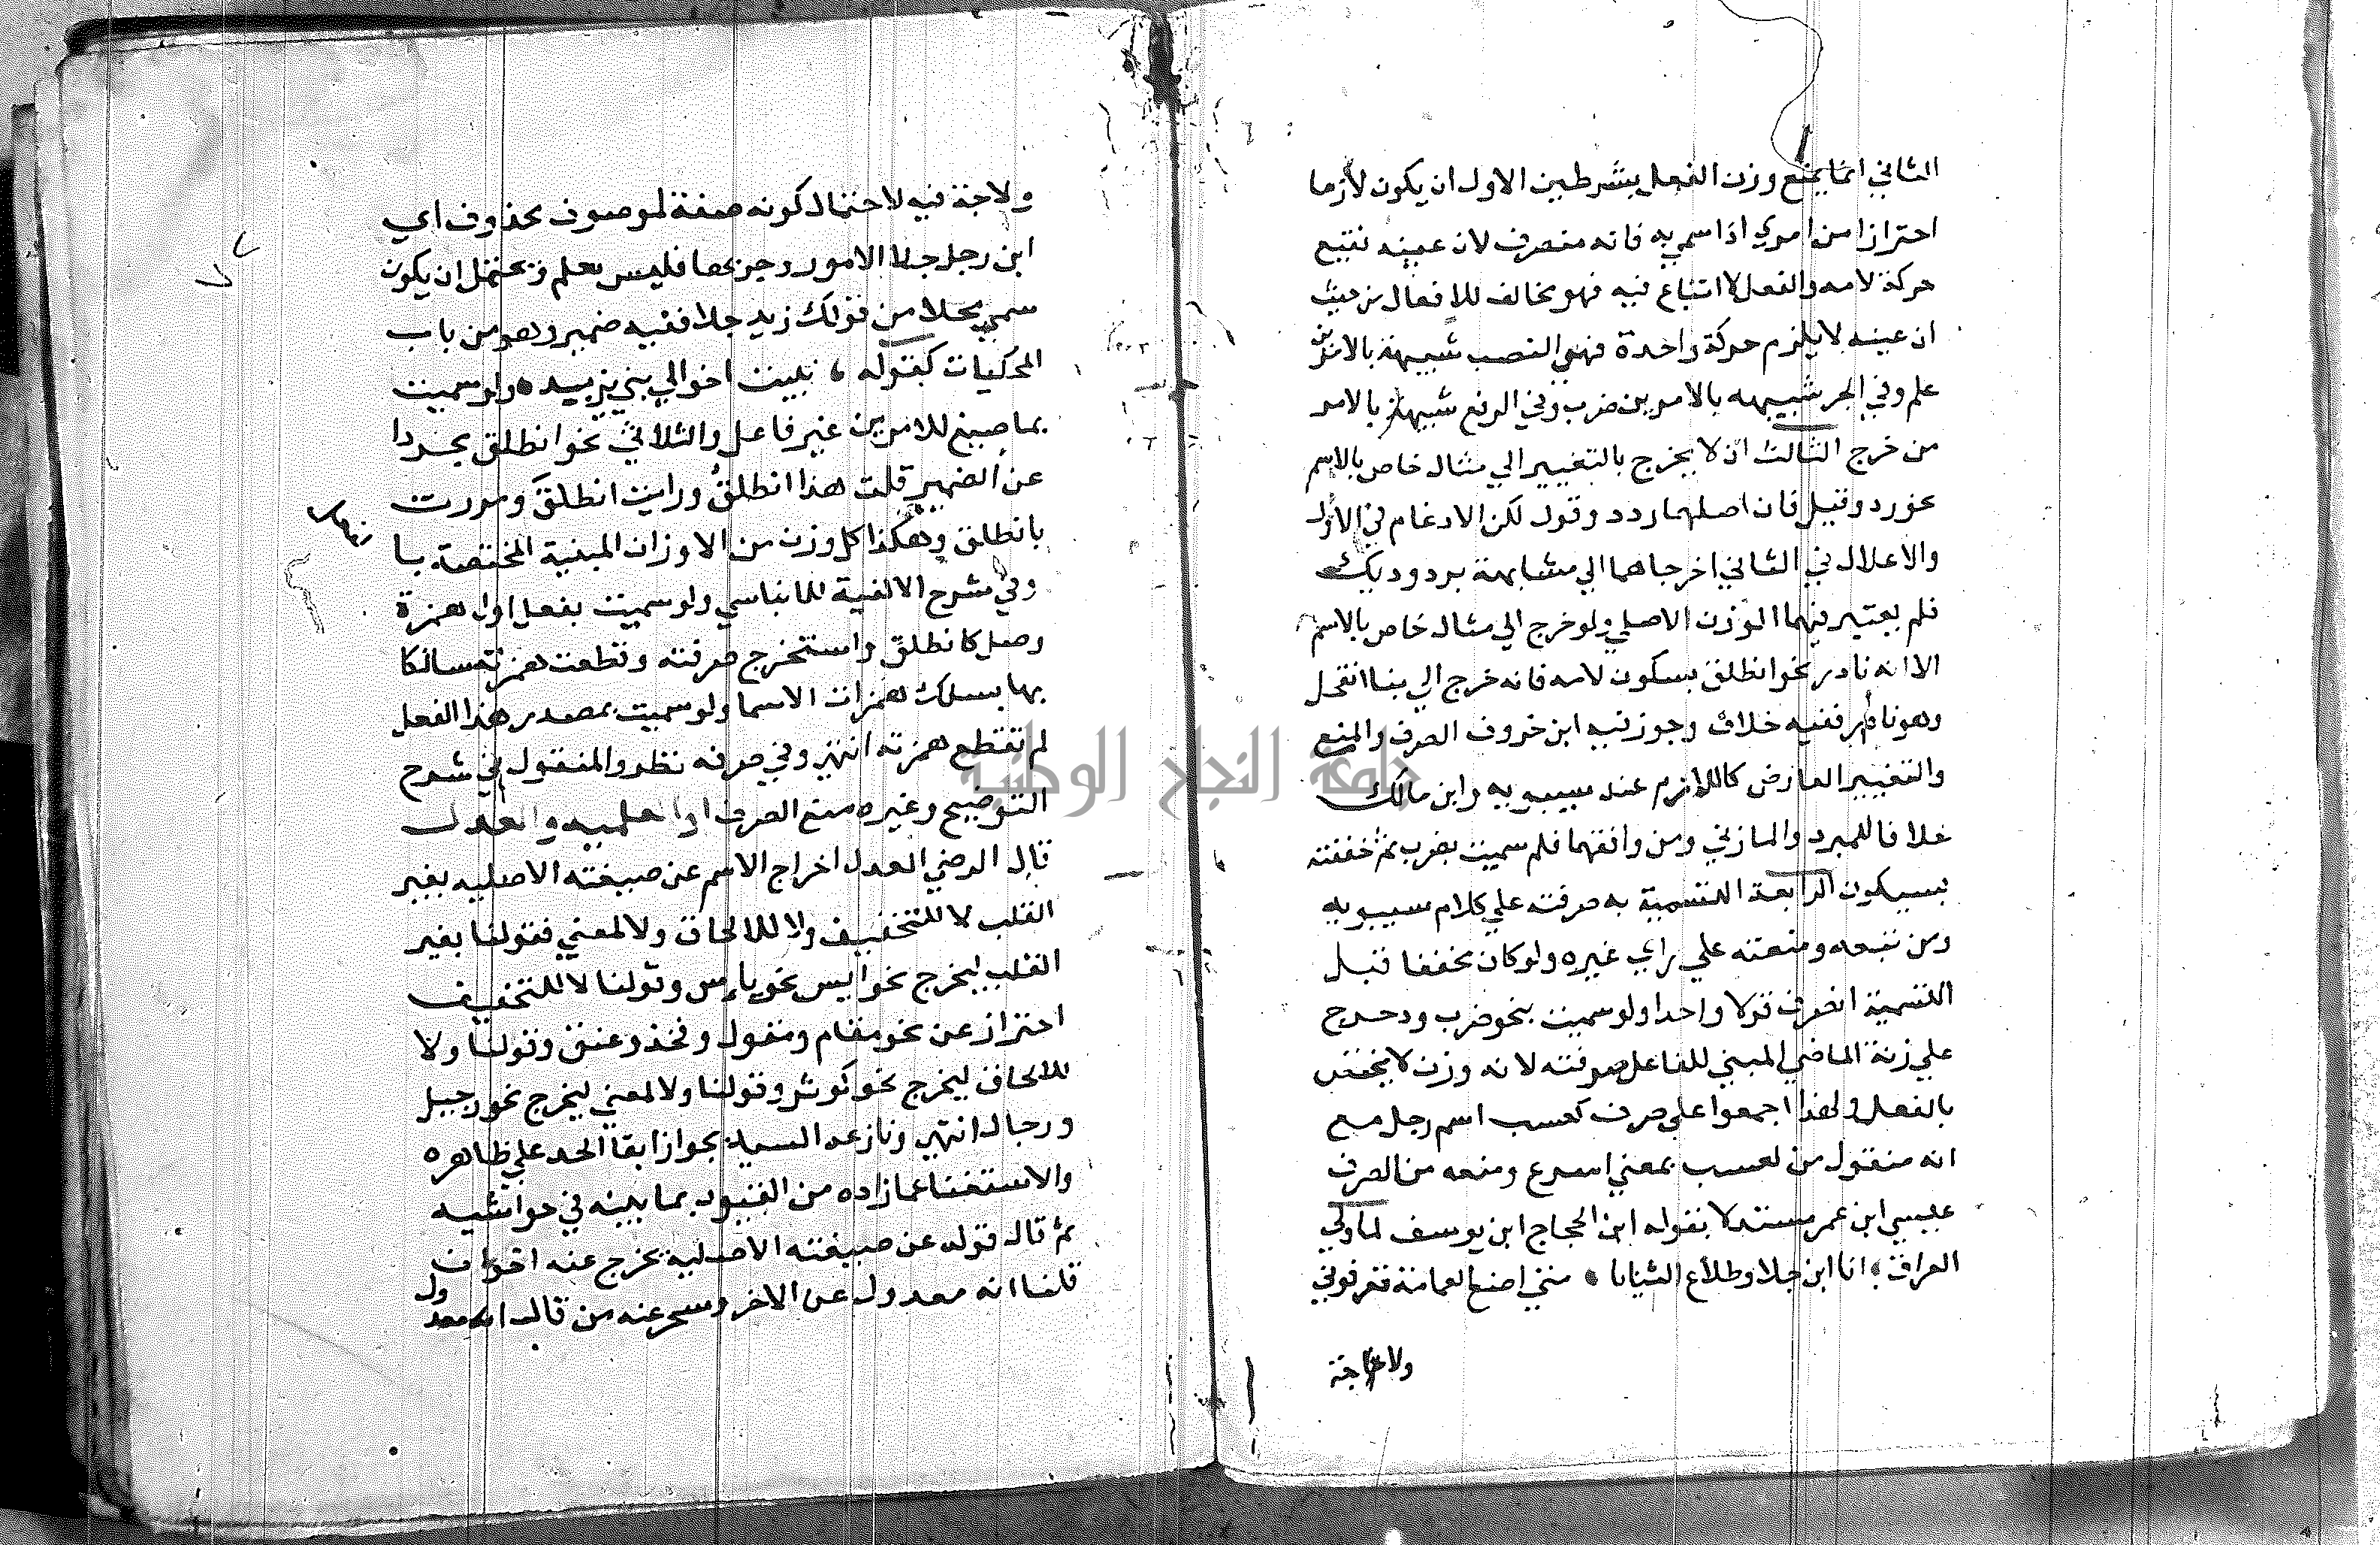 الثاني انما يمنع وزن الفعل بشرطين الاول ان يكون لازما
احترازا من امري اذا سمي به فانه منصرف لان عينه تتبع
حركة لامه والفعل لا اتباع فيه فهو يخالف للافعال من حيث
ان عينه لا يلزم حركة واحدة فهو في النصب شبيهة بالامر من
علم وفي الجر شبيهه بالامر من ضرب وفي الرفع شبيهة بالامر
من خرج الثالث ان لا يخرج بالتغيير الي مثال خاص بالاسم
نحو رد وقيل فان اصلهما ردد وقول لكن الادغام في الاول
والاعلال في الثاني اخرجاهما الي مشابهة برد وديك
فلم يعتبر فيهما الوزن الاصلي ولو خرج الي مثال خاص بالاسم
الا انه نادر نحو انطلق بسكون لامه فانه خرج الي بنا انقحل
وهو نادر ففيه خلاف وجوز فيه ابن خروف الصرف والمنع
والتغيير العارض كاللازم عند سيبويه وابن مالك
خلافا للمبرد والمازني ومن وافقهما فلم سميت بضرب ثم خففته
بسكون الرابعة التسمية به صرفته علي كلام سيبويه
ومن تبعه ومنعته علي راي غيره ولو كان مخففا قبل
التسمية انصرف قولا واحدا ولو سميت بنحو ضرب ودحرج
علي زنة الماضي المبني للفاعل صرفته لانه وزن لا يختص
بالفعل ولهذا اجمعوا علي صرف كعسب اسم رجل مع
انه منقول من كعسب بمعني اسرع ومنعه من الصرف
عيسي ابن عمر مستدلا بقوله ابن الحجاج ابن يوسف لما ولي
العراق انا ابن جلا وطلاع الثنايا متي اضع العمامة تعرفوني
ولا حجة
ولا حجة فيه لاحتمال كونه صفة لموصوف محذوف اي
ابن رجل جلا الامور وجربها فليس بعلم ويحتمل ان يكون
سمي بجلا من قولك زيد جلا ففيه ضمير وهو من باب
المحكيات كقوله نبيت اخوالي بني يزيد ولو سميت
بما صيغ للامر من غير فاعل والثلاثي نحو انطلق مجردا
عن الضمير قلت هذا انطلقُ ورايت انطلقَ ومررت
بانطلق وهكذا كل وزن من الاوزان المبنية المختصة با
وفي شرح الالفية للابناسي ولو سميت بفعل اول همزة
وصل كانطلق واستخرج صرفته وقطعت همزته سالكا
بها مسلك همزات الاسما ولو سميت بمصدر هذا الفعل
لم تقطع همزته انتهي وفي صرفه نظر والمنقول في شرح
التوضيح وغيره منع الصرف والعدل
قال الرضي العدل اخراج الاسم عن صيغته الاصليه بغير
القلب لا للتخفيف ولا للالحاق ولا لمعني فقولنا بغير
القلب ليخرج نحو ايس نحو ياءس وقولنا لا للتخفيف
احتراز عن نحو مقام ومقول وفخذ وعنق وقولنا ولا
للالحاق ليخرج نحو كوثر وقولنا ولا لمعني ليخرج نحو رجيل
ورجال انتهي ونازعه السيد بجواز ابقا الحد علي ظاهره
والاستغنا عما زاده من القيود بما بينه في حواشيه
ثم قال قوله عن صيغته الاصلية يخرج عنه اخر ان
قلنا انه معدول عن الاخر وسحر عنه من قال انه معدول
جامعة النجاح الوطنية